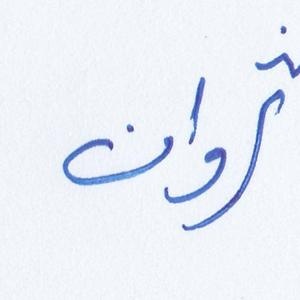 شروان